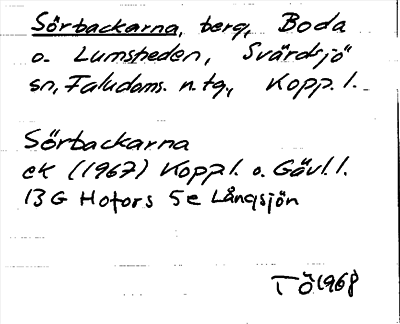 Sörbackarna, berg, Boda
o. Lumsheden, Svärdsjö
sn, Faludoms. n. tg., Kopp. l.
Sörbackarna
ek (1967) Kopp l. o. Gävl. l.
13 G Hofors 5 e Långsjön
TÖ 1968